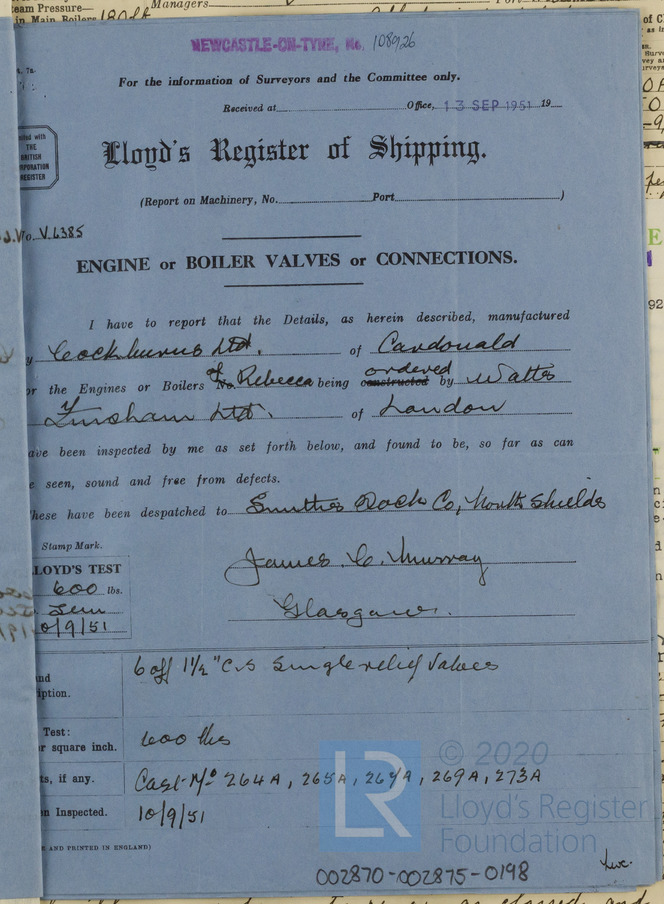 team Pressure—
Managers
in Main Boilers 180 lb
NEWCASTLE-ON-TYNE, No. 108926
For the information of Surveyors and the Committee only.
Received at Office, 13 SEP 1951 19
THE
BRITISH
REGISTER
Lloyd's Register of Shipping.
(Report on Machinery, No. Port )
V.6385
ENGINE or BOILER VALVES or CONNECTIONS.
I have to report that the Details, as herein described, manufactured
y Cockburns Ltd. of Cardonald
ordered
or the Engines or Boilers No. Rebecca being constructed by Watts
Ltd. of London
ave been inspected by me as set forth below, and found to be, so far as can
e seen, sound and free from defects.
hese have been despatched to Smiths Dock Co, North Shields
Stamp Mark.
James C. Murray
LOYD'S TEST
600 lbs.
Glasgow.
10/9/51
6 off 1½" C.S Single relief Valves
nd
iption.
Test:
r square inch.
600 lbs
ts, if any.
Cast Nº 264A, 265A, 267A, 269A, 273A
n Inspected.
10/9/51
AND PRINTED IN ENGLAND)
LR
© 2020
Lloyd's Register
Foundation
002870-002875-0198